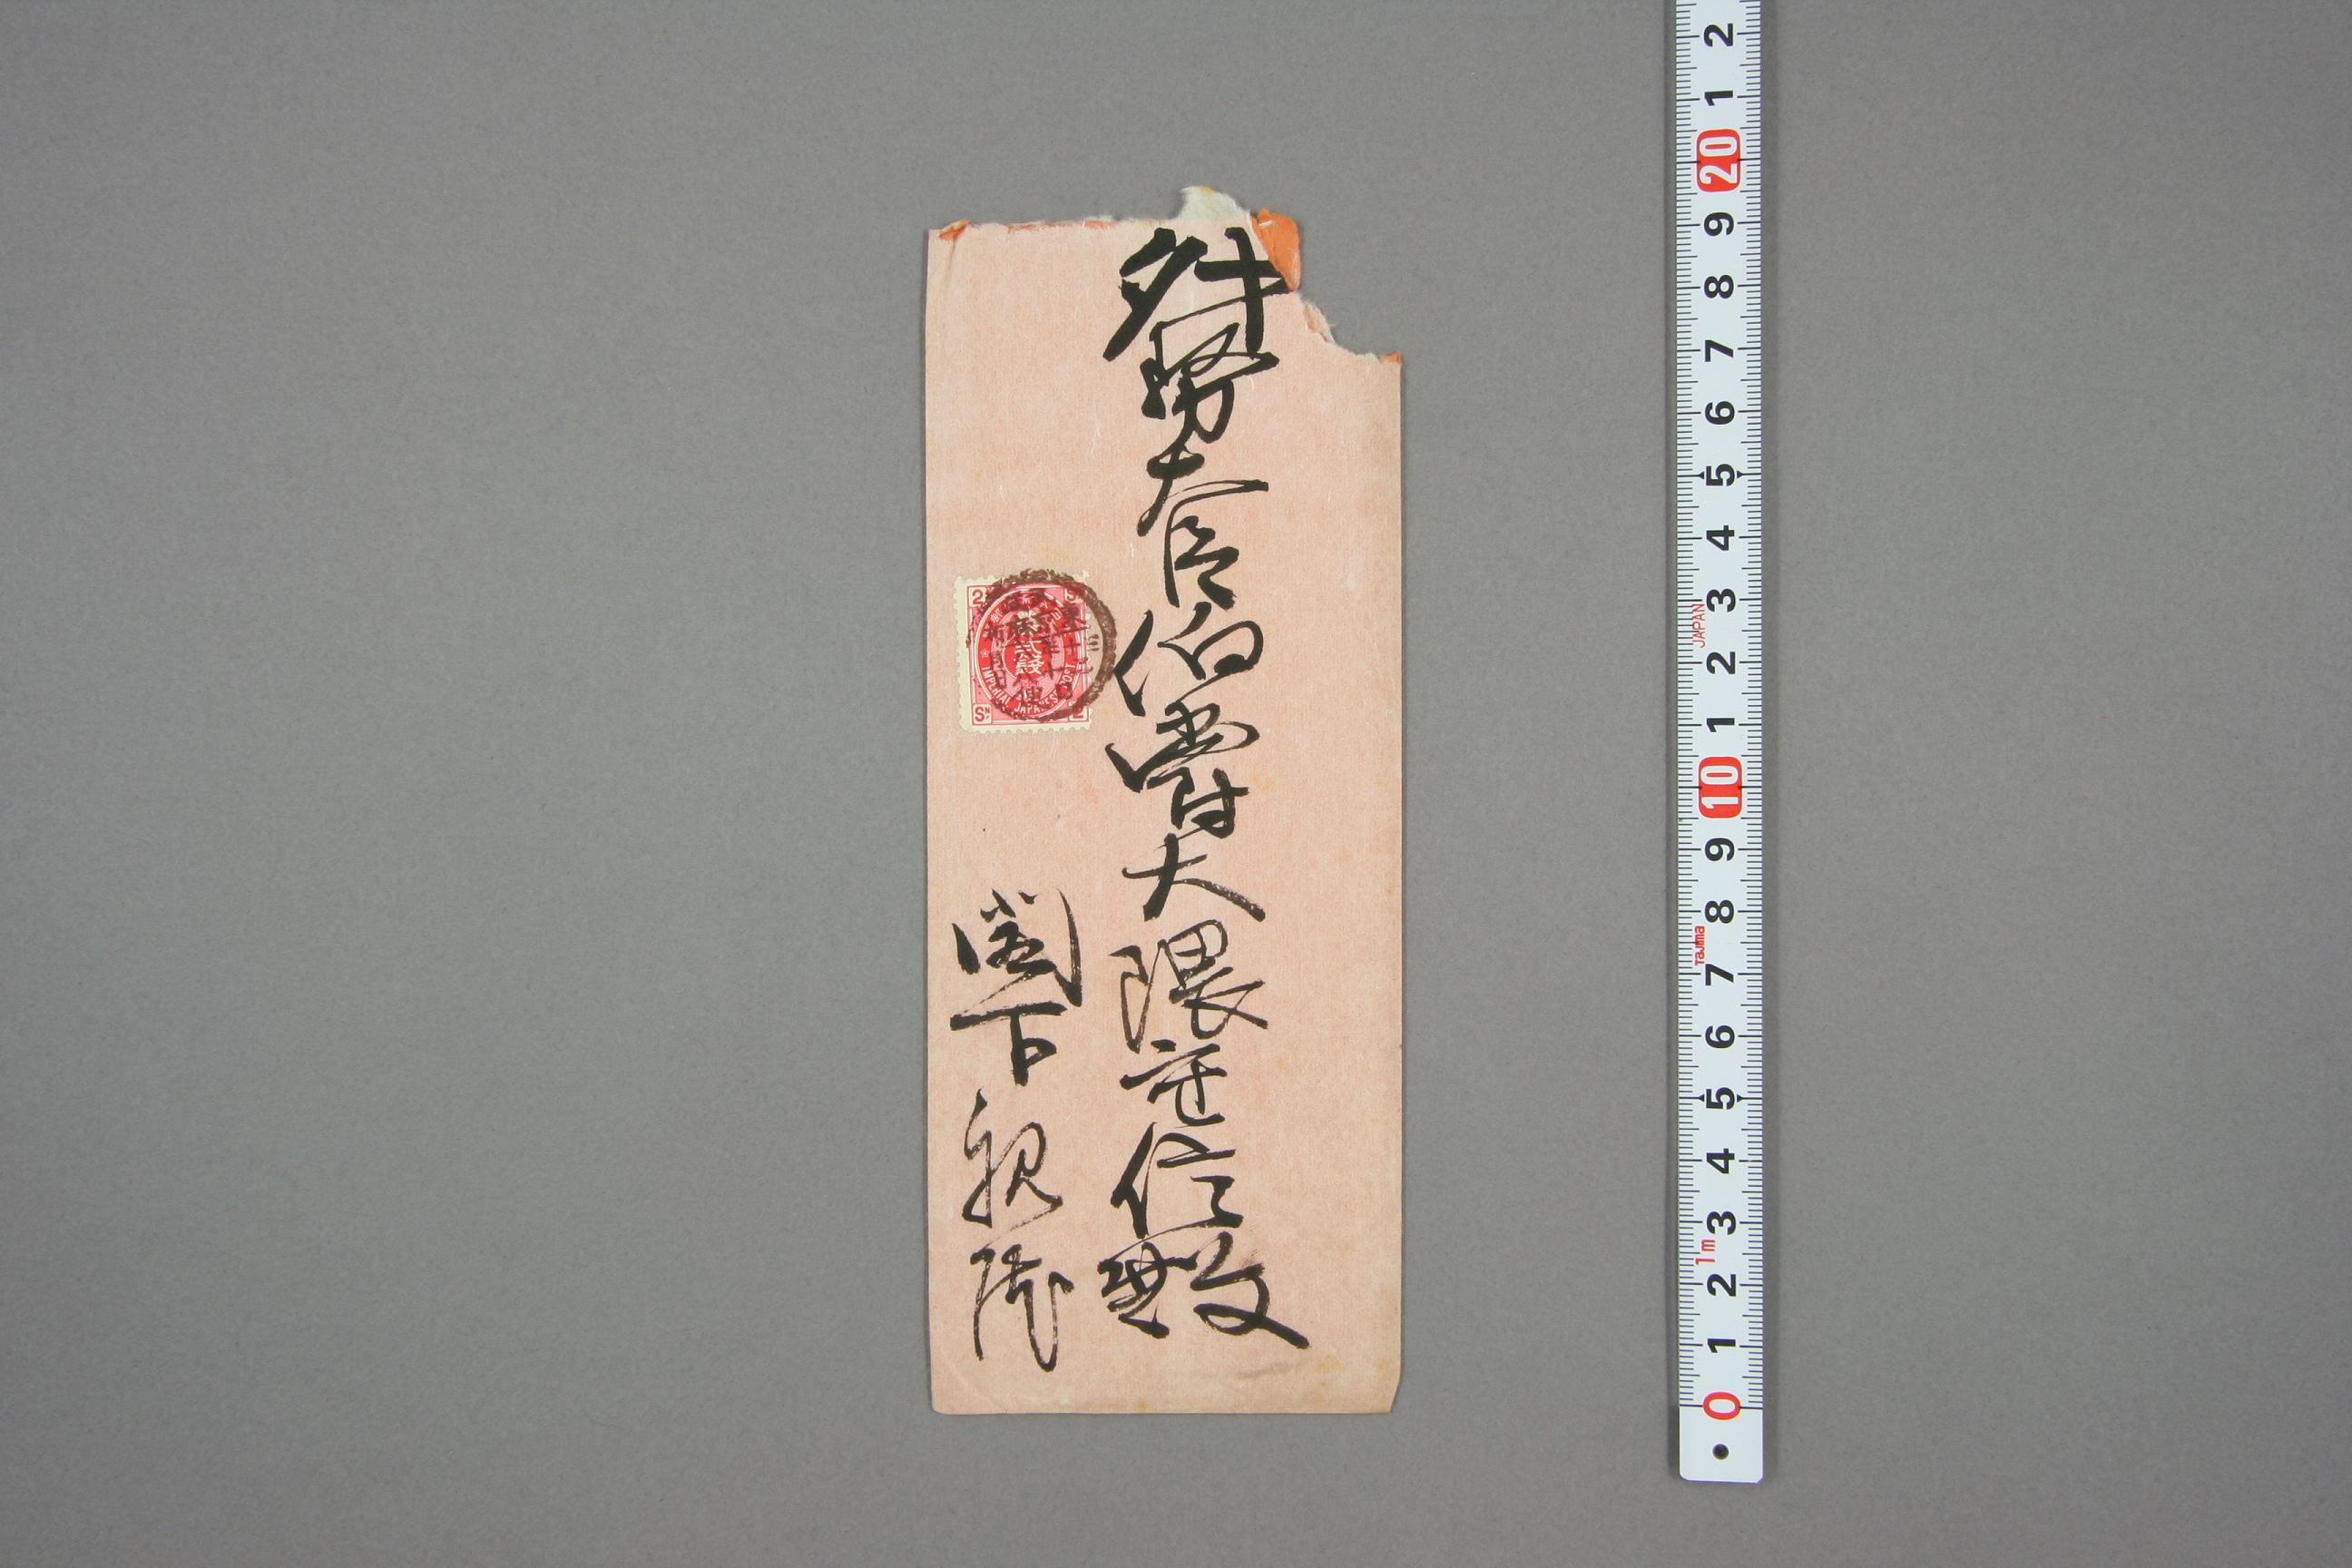 外務大臣伯爵大隈重信殿
閣下親披
2
貳錢
IMPERIAL JAPANESE POST
SN 2
2
1
20
9
8
7
6
5
4
3
JAPAN
2
1
10
9
8
Tajima
7
6
5
4
3
1m
2
1
0